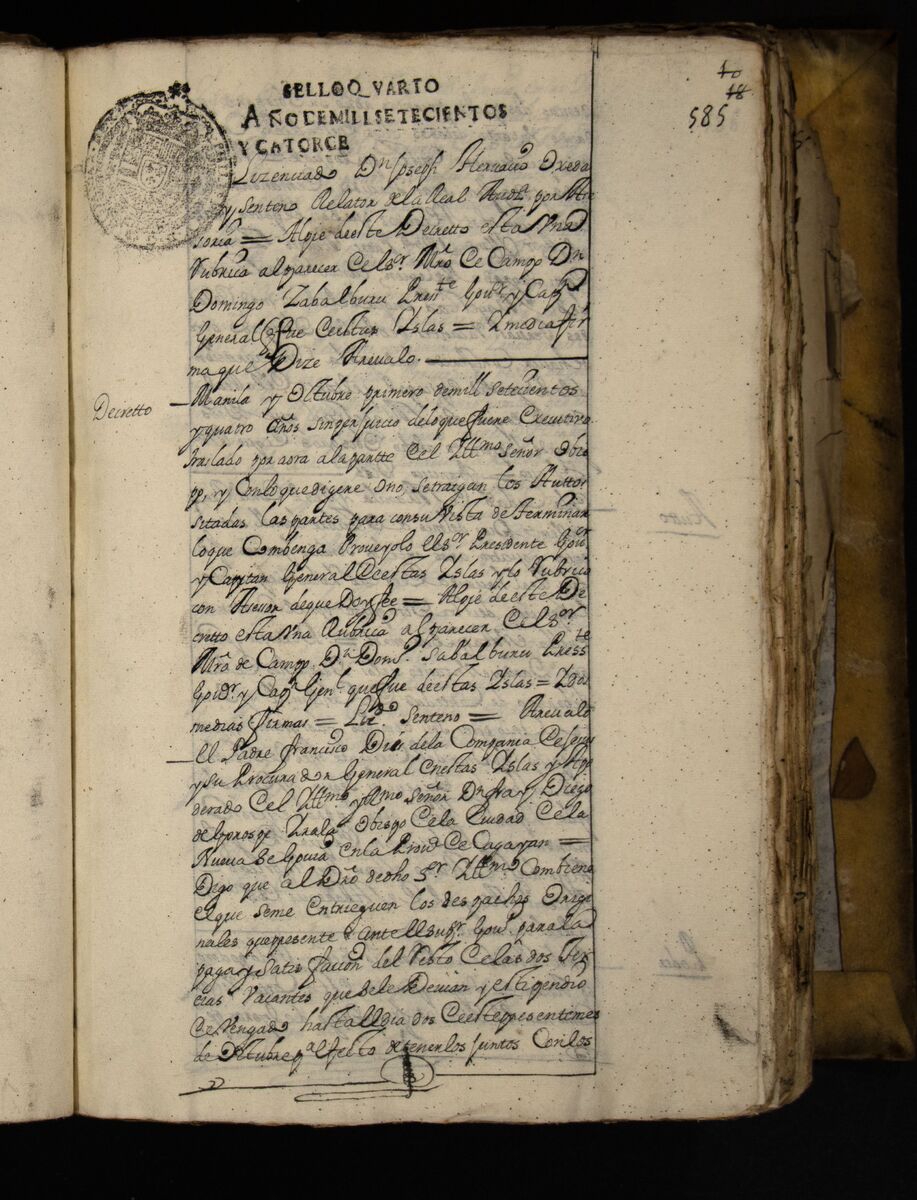 10
18
585
SELLO QVARTO
AÑO DE MILL SETECIENTOS
Y CATORCE
Lizenciado Dn Joseph
y Senteno Relator de la Real Audª por
soria = Al pie de este Decretto esta Vna
Rubrica al parecer Cel sr. Mro Ce Campo Dn
Domingo Zabalburu Pressте Govr y Capn
General que fue Ce estas Yslas = Y media fir
ma que Dize Arevalo.
Decretto
Manila y Octubre primero de mill setecientos
y quatro años sin perjuicio de lo que tiene Executivo
traslado por aora a la partte Cel Yllmo Señor Obis
po, y Con lo que digere o no, se traigan los Auttos
sitadas las partes para con su Vista determinar
lo que Combenga Proveyolo el sr Presidente Govor
y Capitan General Ce estas Yslas y lo Rubrico
con Asesor de que Doy fee = Al pie de este De
cretto esta Vna Rubrica al parecer Cel sor
Mro de Campo Dn Domo Sabalburu Presste
Govdr y Capn Genl que fue de estas Yslas = Y dos
medias firmas = Lizdo Senteno = Arevalo
El Padre Francisco de la Compania Ce Jesus
y su Procurador General en estas Yslas y Apo
derado Cel Yllmo y Rmo Señor Dn fray Diego
de Gorospe Yrala Obispo Ce la Ciudad Ce la
Nueva Segovia en la Provª Ce Cagayan =
Digo que al Dro de dho Sr Yllmo Combiene
el que se me Entrieguen los despachos Origi
nales que presente ante el supr Govo para la
paga y satisfacion del resto Ce las dos Ter
cias Vacantes que se le Devian y estipendio
Ce Vengado hasta el dia dos Ce este presente mes
de Octubre pª efecto de tenerlos juntos Con los